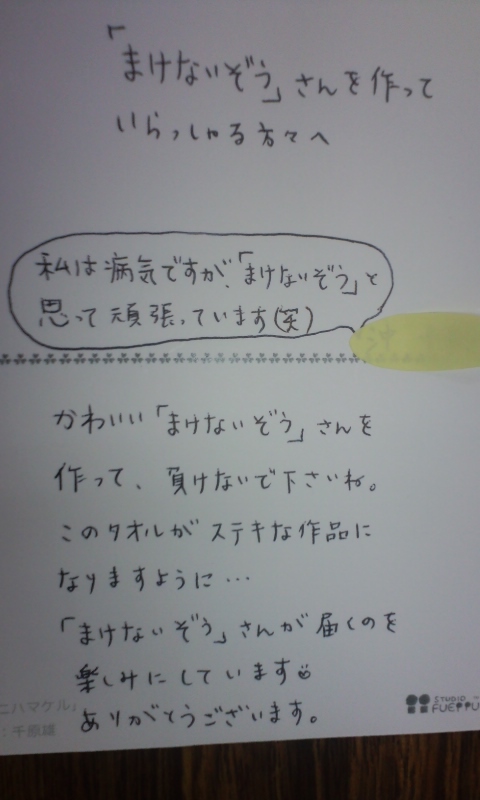 「まけないぞう」さんを作って
いらっしゃる方々へ
私は病気ですが、「まけないぞう」と
思って頑張っています(笑)
かわいい「まけないぞう」さんを
作って、負けないで下さいね。
このタオルがステキな作品に
なりますように…
「まけないぞう」さんが届くのを
楽しみにしています
ありがとうございます。
ニハマケル」
：千原雄
STUDIO
FUEPPU